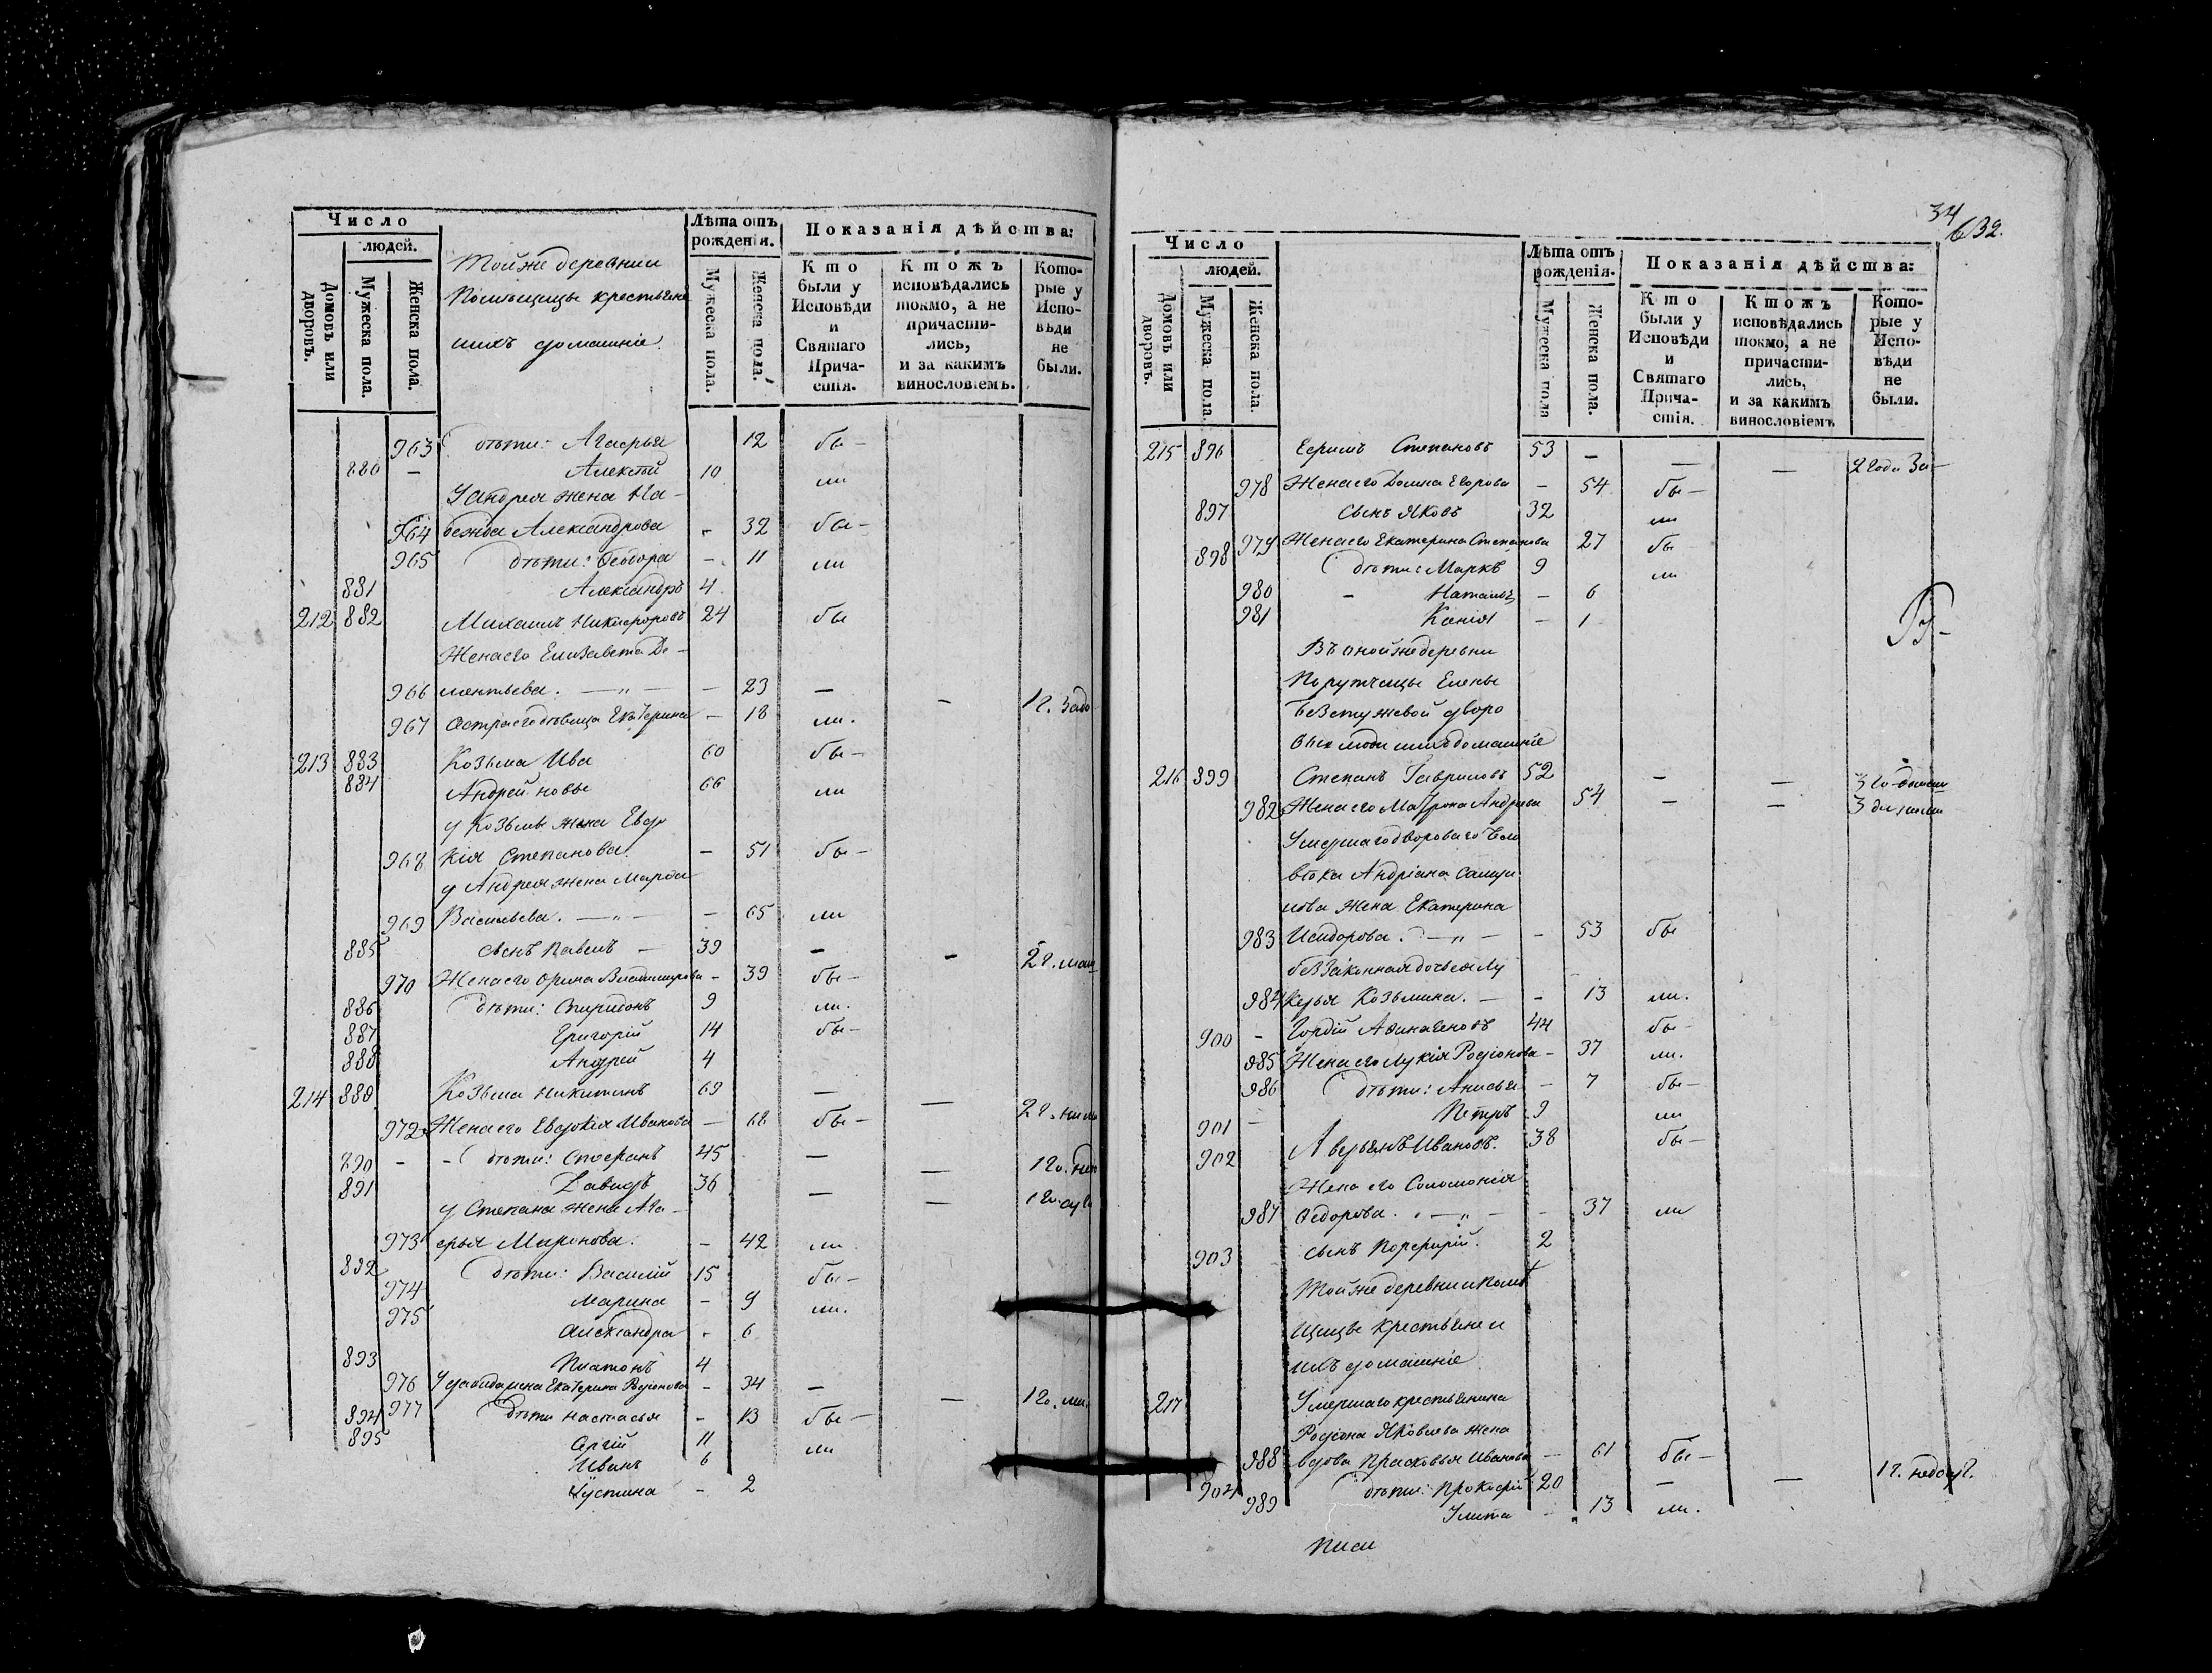 Число
людей.
Домовъ или дворовъ.
Мужеска пола.
Женска пола.
Тойже деревни
Помѣщицы крестьяне
ихъ домашніе
Лѣта отъ рожденія.
Мужеска пола.
Женска пола.
Показанія дѣйства:
Кто были у Исповѣди и Святаго Причастія.
Ктожъ исповѣдались токмо, а не причастились, и за какимъ винословіемъ.
Которые у Исповѣди не были.
963 дѣти: Агафья 12 бы-
880 - Алексѣй 10 ли
У Андрея жена На-
964 дежда Александрова - 32 бы-
965 дѣти: Ѳеодора - 11 ли
881 Александръ 4
212 882 Михаилъ Никифоровъ 24 бы
Жена его Елизавета Де-
966 ментьева. - 23 - -
967 Сестра его дѣвица Екатерина - 18 ли.
213 883 Козьма Ива 60 бы-
884 Андрей новы 66 ли
у Козьмы жена Евдо
968 кія Степанова. - 51 бы-
у Андрея жена Марфа
969 Васильева. - 65 ли
885 сынъ Павелъ - 39 - -
970 Жена его Орина Владимирова - 39 бы-
886 дѣти: Спиридонъ 9 ли.
887 Григорій 14 бы-
888 Андрей 4
214 889 Козьма Никитинъ 69 - -
972 Жена его Евдокія Иванова - 68 бы-
890 - - дѣти: Стефанъ 45 - -
891 Давидъ 36 - -
у Степана жена Ага-
973 фья Миронова. - 42 ли
892 дѣти: Василій 15 бы-
974 Марина - 9 ли.
975 Александра - 6
893 Платонъ 4
976 У Давида жена Екатерина Родіонова - 34 - -
977 дѣти Настасья - 13 бы-
894 Сергій 11 ли
895 Иванъ 6
Іустина - 2
34
632.
Число
людей.
Домовъ или дворовъ.
Мужеска пола.
Женска пола.
Лѣта отъ рожденія.
Мужеска пола
Женска пола.
Показанія дѣйства:
Кто были у Исповѣди и Святаго Причастія.
Ктожъ исповѣдались токмо, а не причастились, и за какимъ винословіемъ
Которые у Исповѣди не были.
215 896 Степановъ 53 - - -
978 Жена его Домна Егорова - 54 бы-
897 сынъ Яковъ 32 ли
979 Жена его Екатерина Степанова 27 бы
898 дѣти: Маркъ 9 ли
980 - Наталья - 6
981 Ксенія - 1
Въ оной же деревни
Порутчицы Елены
Безстужевой дворо
вые люди ихъ домашніе
216 899 Степанъ Гавриловъ 52 - -
982 Жена его Матрона Андреева 54 - -
Умершаго двороваго чело
вѣка Андріана Самуи
лова жена Екатерина
983 Исидорова. - 53 бы
беззаконная дочь ея Лу
984 керья Козьмина. - - 13 ли.
900 - Гордій Аѳиногеновъ 44 бы-
985 Жена его Лукія Родіонова - 37 ли.
986 дѣти: Анисья - 7 бы-
901 - Петръ 9 ли
902 Аверьянъ Ивановъ. 38 бы-
Жена его Соломонія
987 Ѳедорова. - 37 ли
903 сынъ Порфирій. 2
Тойже деревни и помѣ
щицы крестьяне и
ихъ домашніе
217 Умершаго крестьянина
Родіона Яковлева жена
988 вдова Прасковья Иванова - 61 бы-
904 дѣти: Прокофій 20 - -
989 Улита - 13 ли.